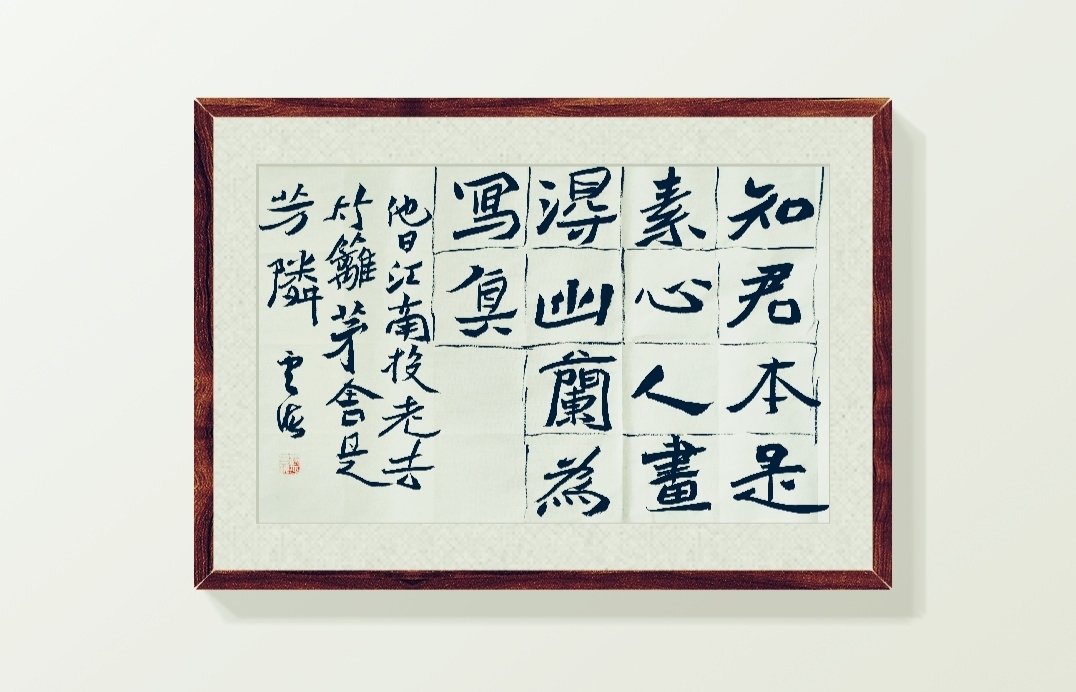 知君本是
素心人畫
淂幽蘭為
冩真
他日江南投老去
竹籬茅舍是
芳隣